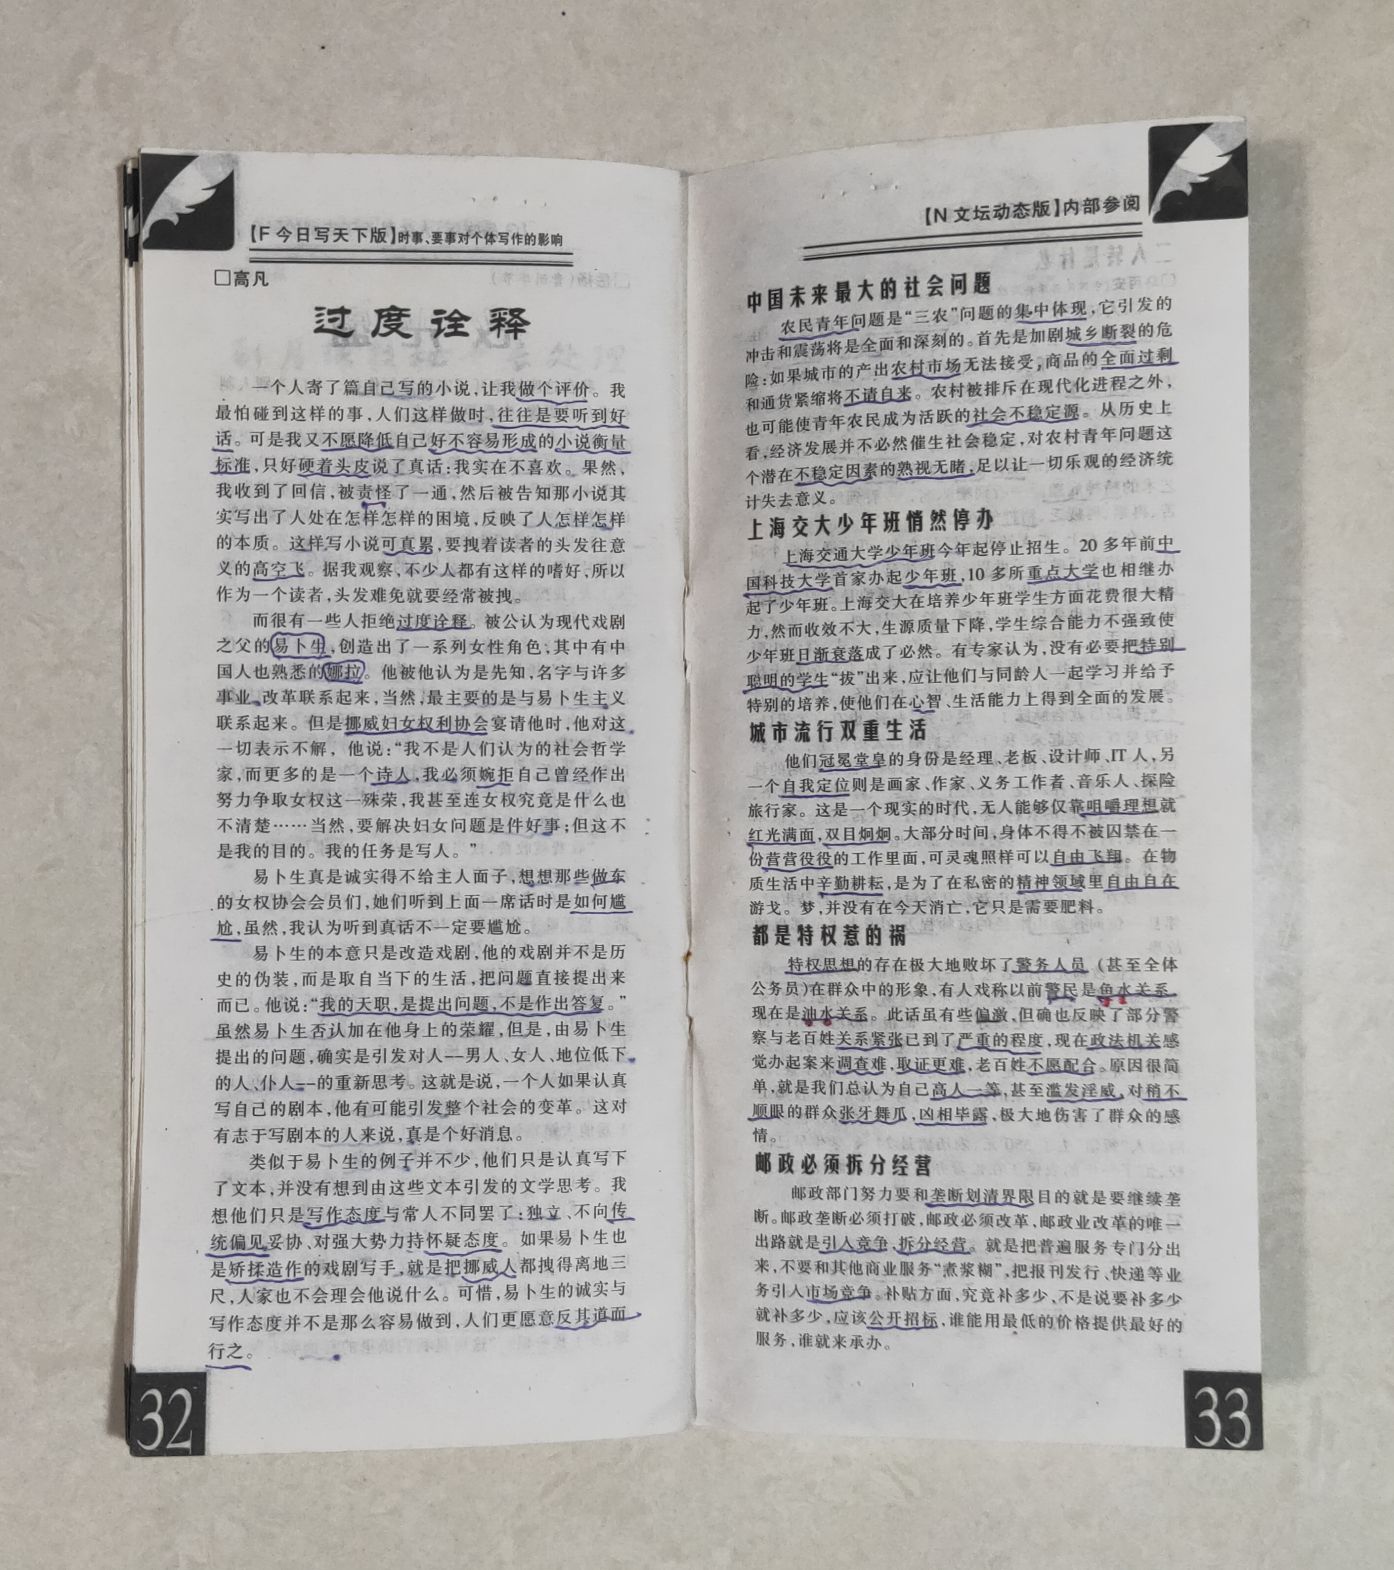 【F 今日写天下版】时事、要事对个体写作的影响
□高凡
过度诠释
一个人寄了篇自己写的小说,让我做个评价。我
最怕碰到这样的事,人们这样做时,往往是要听到好
话。可是我又不愿降低自己好不容易形成的小说衡量
标准,只好硬着头皮说了真话:我实在不喜欢。果然,
我收到了回信,被责怪了一通,然后被告知那小说其
实写出了人处在怎样怎样的困境,反映了人怎样怎样
的本质。这样写小说可真累,要拽着读者的头发往意
义的高空飞。据我观察,不少人都有这样的嗜好,所以
作为一个读者,头发难免就要经常被拽。
而很有一些人拒绝过度诠释。被公认为现代戏剧
之父的易卜生,创造出了一系列女性角色,其中有中
国人也熟悉的娜拉。他被他认为是先知,名字与许多
事业、改革联系起来,当然,最主要的是与易卜生主义
联系起来。但是挪威妇女权利协会宴请他时,他对这
一切表示不解，他说:“我不是人们认为的社会哲学
家,而更多的是一个诗人,我必须婉拒自己曾经作出
努力争取女权这一殊荣,我甚至连女权究竟是什么也
不清楚……当然,要解决妇女问题是件好事;但这不
是我的目的。我的任务是写人。”
易卜生真是诚实得不给主人面子,想想那些做东
的女权协会会员们,她们听到上面一席话时是如何尴
尬,虽然,我认为听到真话不一定要尴尬。
易卜生的本意只是改造戏剧,他的戏剧并不是历
史的伪装,而是取自当下的生活,把问题直接提出来
而已。他说:“我的天职,是提出问题,不是作出答复。”
虽然易卜生否认加在他身上的荣耀,但是,由易卜生
提出的问题,确实是引发对人--男人、女人、地位低下
的人、仆人--的重新思考。这就是说,一个人如果认真
写自己的剧本,他有可能引发整个社会的变革。这对
有志于写剧本的人来说,真是个好消息。
类似于易卜生的例子并不少,他们只是认真写下
了文本,并没有想到由这些文本引发的文学思考。我
想他们只是写作态度与常人不同罢了:独立、不向传
统偏见妥协、对强大势力持怀疑态度。如果易卜生也
是矫揉造作的戏剧写手,就是把挪威人都拽得离地三
尺,人家也不会理会他说什么。可惜,易卜生的诚实与
写作态度并不是那么容易做到,人们更愿意反其道而
行之。
32
【N 文坛动态版】内部参阅
中国未来最大的社会问题
农民青年问题是“三农”问题的集中体现,它引发的
冲击和震荡将是全面和深刻的。首先是加剧城乡断裂的危
险:如果城市的产出农村市场无法接受,商品的全面过剩
和通货紧缩将不请自来。农村被排斥在现代化进程之外,
也可能使青年农民成为活跃的社会不稳定源。从历史上
看,经济发展并不必然催生社会稳定,对农村青年问题这
个潜在不稳定因素的熟视无睹,足以让一切乐观的经济统
计失去意义。
上海交大少年班悄然停办
上海交通大学少年班今年起停止招生。20 多年前中
国科技大学首家办起少年班,10 多所重点大学也相继办
起了少年班。上海交大在培养少年班学生方面花费很大精
力,然而收效不大,生源质量下降,学生综合能力不强致使
少年班日渐衰落成了必然。有专家认为,没有必要把特别
聪明的学生“拔”出来,应让他们与同龄人一起学习并给予
特别的培养,使他们在心智、生活能力上得到全面的发展。
城市流行双重生活
他们冠冕堂皇的身份是经理、老板、设计师、IT 人,另
一个自我定位则是画家、作家、义务工作者、音乐人、探险
旅行家。这是一个现实的时代,无人能够仅靠咀嚼理想就
红光满面,双目炯炯。大部分时间,身体不得不被囚禁在一
份营营役役的工作里面,可灵魂照样可以自由飞翔。在物
质生活中辛勤耕耘,是为了在私密的精神领域里自由自在
游戈。梦,并没有在今天消亡,它只是需要肥料。
都是特权惹的祸
特权思想的存在极大地败坏了警务人员（甚至全体
公务员)在群众中的形象,有人戏称以前警民是鱼水关系,
现在是油水关系。此话虽有些偏激,但确也反映了部分警
察与老百姓关系紧张已到了严重的程度,现在政法机关感
觉办起案来调查难,取证更难,老百姓不愿配合。原因很简
单,就是我们总认为自己高人一等,甚至滥发淫威,对稍不
顺眼的群众张牙舞爪,凶相毕露,极大地伤害了群众的感
情。
邮政必须拆分经营
邮政部门努力要和垄断划清界限目的就是要继续垄
断。邮政垄断必须打破,邮政必须改革,邮政业改革的唯一
出路就是引人竞争,拆分经营。就是把普遍服务专门分出
来,不要和其他商业服务“煮浆糊”,把报刊发行、快递等业
务引人市场竞争。补贴方面,究竟补多少,不是说要补多少
就补多少,应该公开招标,谁能用最低的价格提供最好的
服务,谁就来承办。
33